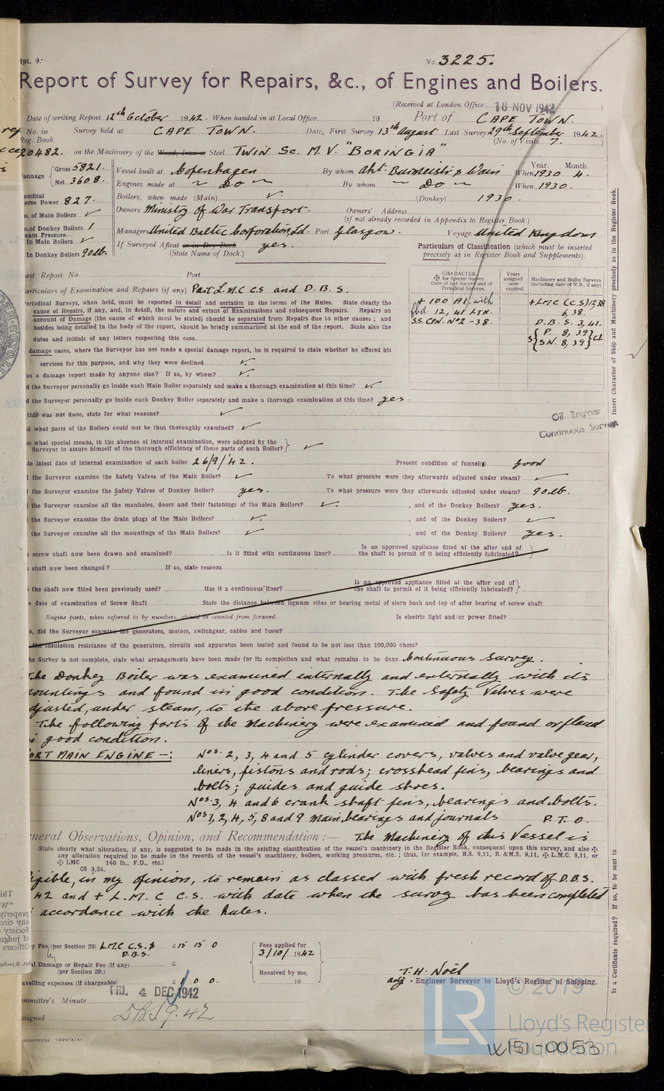 Rpt. 9.
No. 3225.
Report of Survey for Repairs, &c., of Engines and Boilers.
(Received at London Office 18 NOV 1942)
Date of writing Report 12th October 1942. When handed in at Local Office 19 Port of CAPE TOWN.
No. in Survey held at CAPE TOWN. Date, First Survey 13th August Last Survey 29th September 1942.
Reg. Book (No. of Visits 7.
20482. on the Machinery of the Wood, Iron or Steel TWIN Sc. M.V. "BORINGIA"
Gross 5821. Vessel built at Copenhagen By whom Akt. Burmeister & Wain Year. Month. When 1930 4.
Net 3608. Engines made at Do By whom Do When 1930.
827. Boilers, when made (Main) ✓ (Donkey) 1930
No. of Main Boilers ✓ Owners Ministry of War Transport. Owners' Address
(if not already recorded in Appendix to Register Book.)
No. of Donkey Boilers 1 Managers United Baltic Corporation, Ltd. Port Glasgow. Voyage United Kingdom
In Main Boilers ✓ If Surveyed Afloat or in Dry Dock yes.
In Donkey Boilers 90lb. (State Name of Dock.)
Particulars of Classification (which must be inserted
precisely as in Register Book and Supplements).
Last Report No. Port
Particulars of Examination and Repairs (if any) Part L.M.C CS and D.B.S.
Periodical Surveys, when held, must be reported in detail and seriatim in the terms of the Rules. State clearly the
cause of Repairs, if any, and, in detail, the nature and extent of Examinations and subsequent Repairs. Repairs on
account of Damage (the cause of which must be stated) should be separated from Repairs due to other causes; and
besides being detailed in the body of the report, should be briefly summarised at the end of the report. State also the
dates and initials of any letters respecting this case.
+100 A1 with
fbd. 12, 41 LTN.
SS. CPN. No2 - 38.
+LMC (CS)
6,38.
D.B.S. 3,41.
P 8,39
SN. 8,39
CL
damage cases, where the Surveyor has not made a special damage report, he is required to state whether he offered his
services for this purpose, and why they were declined ✓
was a damage report made by anyone else? If so, by whom? ✓
the Surveyor personally go inside each Main Boiler separately and make a thorough examination at this time? ✓
the Surveyor personally go inside each Donkey Boiler separately and make a thorough examination at this time? yes.
this was not done, state for what reasons? ✓
what parts of the Boilers could not be thus thoroughly examined? ✓
Oil Engines
Continuous Survey
what special means, in the absence of internal examination, were adopted by the
Surveyor to assure himself of the thorough efficiency of those parts of each Boiler? ✓
latest date of internal examination of each boiler 26/9/42. Present condition of funnels good
the Surveyor examine the Safety Valves of the Main Boiler? ✓ To what pressure were they afterwards adjusted under steam? ✓
the Surveyor examine the Safety Valves of Donkey Boiler? yes. To what pressure were they afterwards adjusted under steam? 90lb.
the Surveyor examine all the manholes, doors and their fastenings of the Main Boilers? ✓, and of the Donkey Boilers? yes.
the Surveyor examine the drain plugs of the Main Boilers? ✓, and of the Donkey Boilers? ✓
the Surveyor examine all the mountings of the Main Boilers? ✓, and of the Donkey Boilers? yes.
screw shaft now been drawn and examined? Is it fitted with continuous liner? Is an approved appliance fitted at the after end of
the shaft to permit of it being efficiently lubricated?
shaft now been changed? If so, state reasons
the shaft now fitted been previously used? Has it a continuous liner? Is an approved appliance fitted at the after end of
the shaft to permit of it being efficiently lubricated?
date of examination of Screw Shaft State the distance between lignum vitæ or bearing metal of stern bush and top of after bearing of screw shaft
Engine parts, when referred to by number, should be counted from forward. Is electric light and/or power fitted?
did the Surveyor examine the generators, motors, switchgear, cables and fuses?
the insulation resistance of the generators, circuits and apparatus been tested and found to be not less than 100,000 ohms?
the Survey is not complete, state what arrangements have been made for its completion and what remains to be done Continuous Survey.
The Donkey Boiler was examined internally and externally with its
mountings and found in good condition. The Safety Valves were
adjusted, under steam, to the above pressure.
The following parts of the Machinery were examined and found or placed
in good condition.
PORT MAIN ENGINE -: Nos. 2, 3, 4 and 5 cylinder covers, valves and valve gear,
liners, pistons and rods; crosshead pins, bearings and
bolts; guides and guide shoes.
Nos 3, 4 and 6 crank shaft pins, bearings and bolts.
Nos 1, 2, 4, 5, 8 and 9 main bearings and journals P.T.O.
General Observations, Opinion, and Recommendation:— The Machinery of this Vessel is
(State clearly what alteration, if any, is suggested to be made in the existing classification of the vessel's machinery in the Register Book, consequent upon this survey, and also
any alteration required to be made in the records of the vessel's machinery, boilers, working pressures, etc.; thus, for example, B.S. 9,11, B. & M.S. 9,11, L.M.C. 9,11, or
LMC 140 lb., F.D., etc.)
CS 3,34.
eligible, in my opinion, to remain as classed with fresh record of D.B.S.
42 and + L.M.C C.S. with date when the survey has been completed
accordance with the Rules.
Fee (per Section 29) L.M.C C.S. & D.B.S. £15 15 0 Fees applied for
3/10/1942
Damage or Repair Fee (if any) £
(per Section 28.) Received by me,
Travelling expenses (if chargeable) £1 0 0. 19
T.H. Noël
Engineer Surveyor to Lloyd's Register of Shipping.
Committee's Minute FRI. 4 DEC 1942
Assigned DBS 9.42
Insert Character of Ship and Machinery precisely as in the Register Book.
Is a Certificate required? If so, to be sent to
LR
© 2019
Lloyd's Register
Foundation
W151-0053